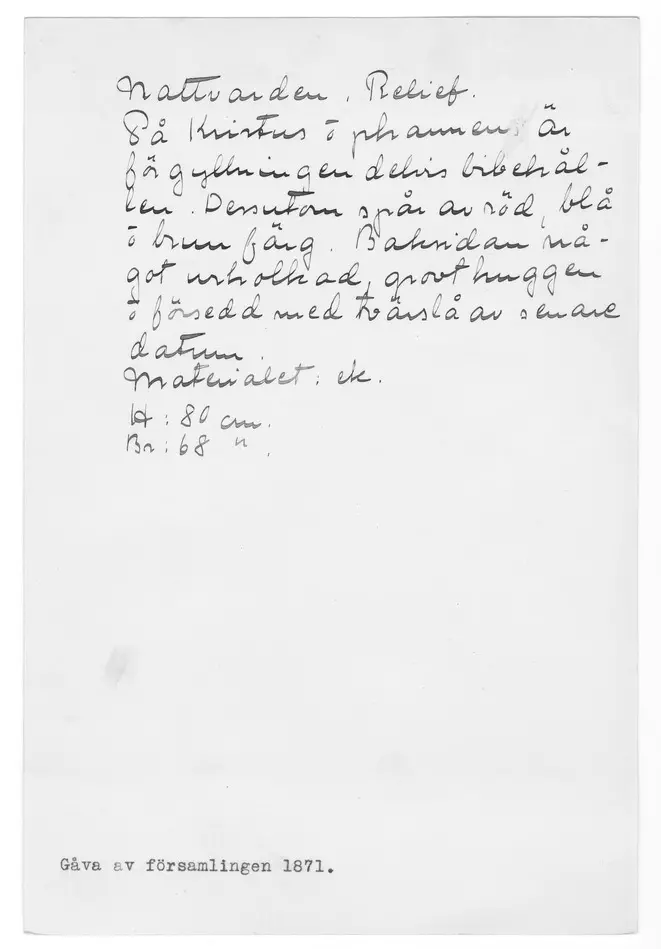 Nattvarden. Relief.
På Kristus o Johannes är
förgyllningen delvis bibehål-
len. Dessutom spår av röd, blå
o brun färg. Baksidan nå-
got urholkad, grovt huggen
o försedd med tvärslå av senare
datum.
Materialet: ek.
H: 80 cm.
Br: 68 "
Gåva av församlingen 1871.